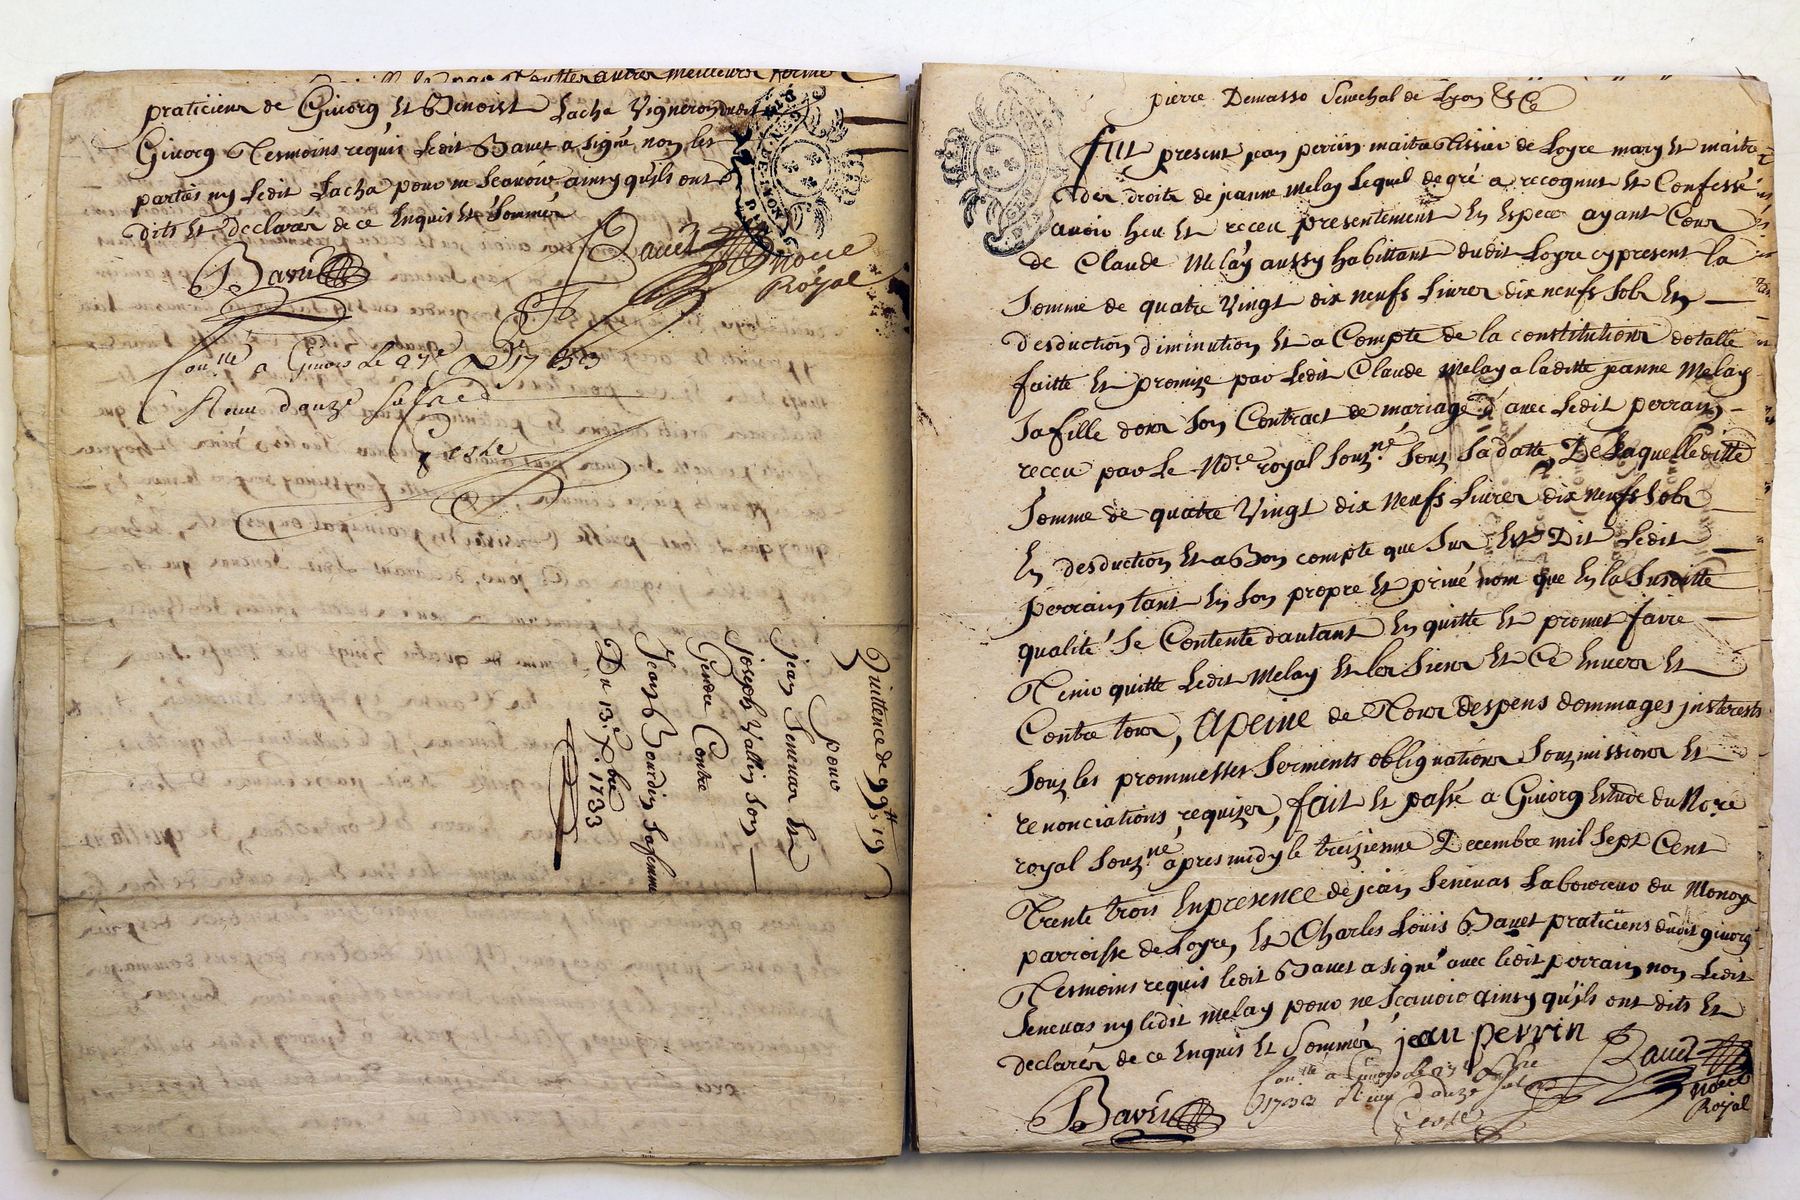 praticiens de Givorg et Benoist Lacha Vigneron dudit
Givorg Tesmoins requis Ledit Bavet a signé non les
parties ny Ledit Lacha pour ne scavoir ainsy qu'ils ont
dits et declarés de ce Enquis et sommés
Bavet
Bavet
Nore
Royal
Con.lle a Givors Le 27e Xbre 1733
Reçu douze sols
Quittence de 99tt 19s
pour
jean Senevas et
joseph Vallin son
Gendre Contre
Jean Bourdin sa femme
Du 13e Xbre 1733
pierre Demasso Senechal de Lyon &c
fut present jean perrin maitre Tissier de Loyre mary et maitre
des droits de jeanne Melay Lequel de gré a recognut et Confessé
avoir heu et receu presentement En Espece ayant Cour
de Claude Melay aussy habittant dudit Loyre cy present la
somme de quatre Vingt dix neufs Livres dix neufs sols En
desduction diminution et a Compte de la constitution dotalle
faitte et promize par Ledit Claude Melay a laditte jeanne Melay
sa fille dans son Contract de mariage avec Ledit perrain
receu par Le Nore royal souz.né sous sa datte, De Laquelle ditte
somme de quatre Vingt dix neufs Livres dix neufs sols
En desduction et a Bon compte que sur Est Dit Ledit
perrain tant En son propre et privé nom que En la susditte
qualité se Contente d'autant En quitte et promet faire
Tenir quitte Ledit Melay et les siens et Ce Envers et
Contre tous, Apeine de Tous despens dommages jnsterests
sous les prommesses serments obligations souzmissions et
renonciations requizes, fait et passé a Givorg Estude du No.re
royal souz.né apres midy le treizieme Decembre mil sept Cent
Trente trois En presence de jean Senevas Laboureur du Monoya
parroisse de Loyre, et Charles Louis Bavet praticiens dudit givorg
Tesmoins requis ledit Bavet a signé avec ledit perrain non Ledit
Senevas ny ledit Melay pour ne scavoir ainsy qu'ils ont dits et
declarés de ce Enquis et sommés jean perrin
Bavet
Nore
Royal
Con.lle a Givors Le 27e Xbre
1733 Reçu douze sols
Bavet